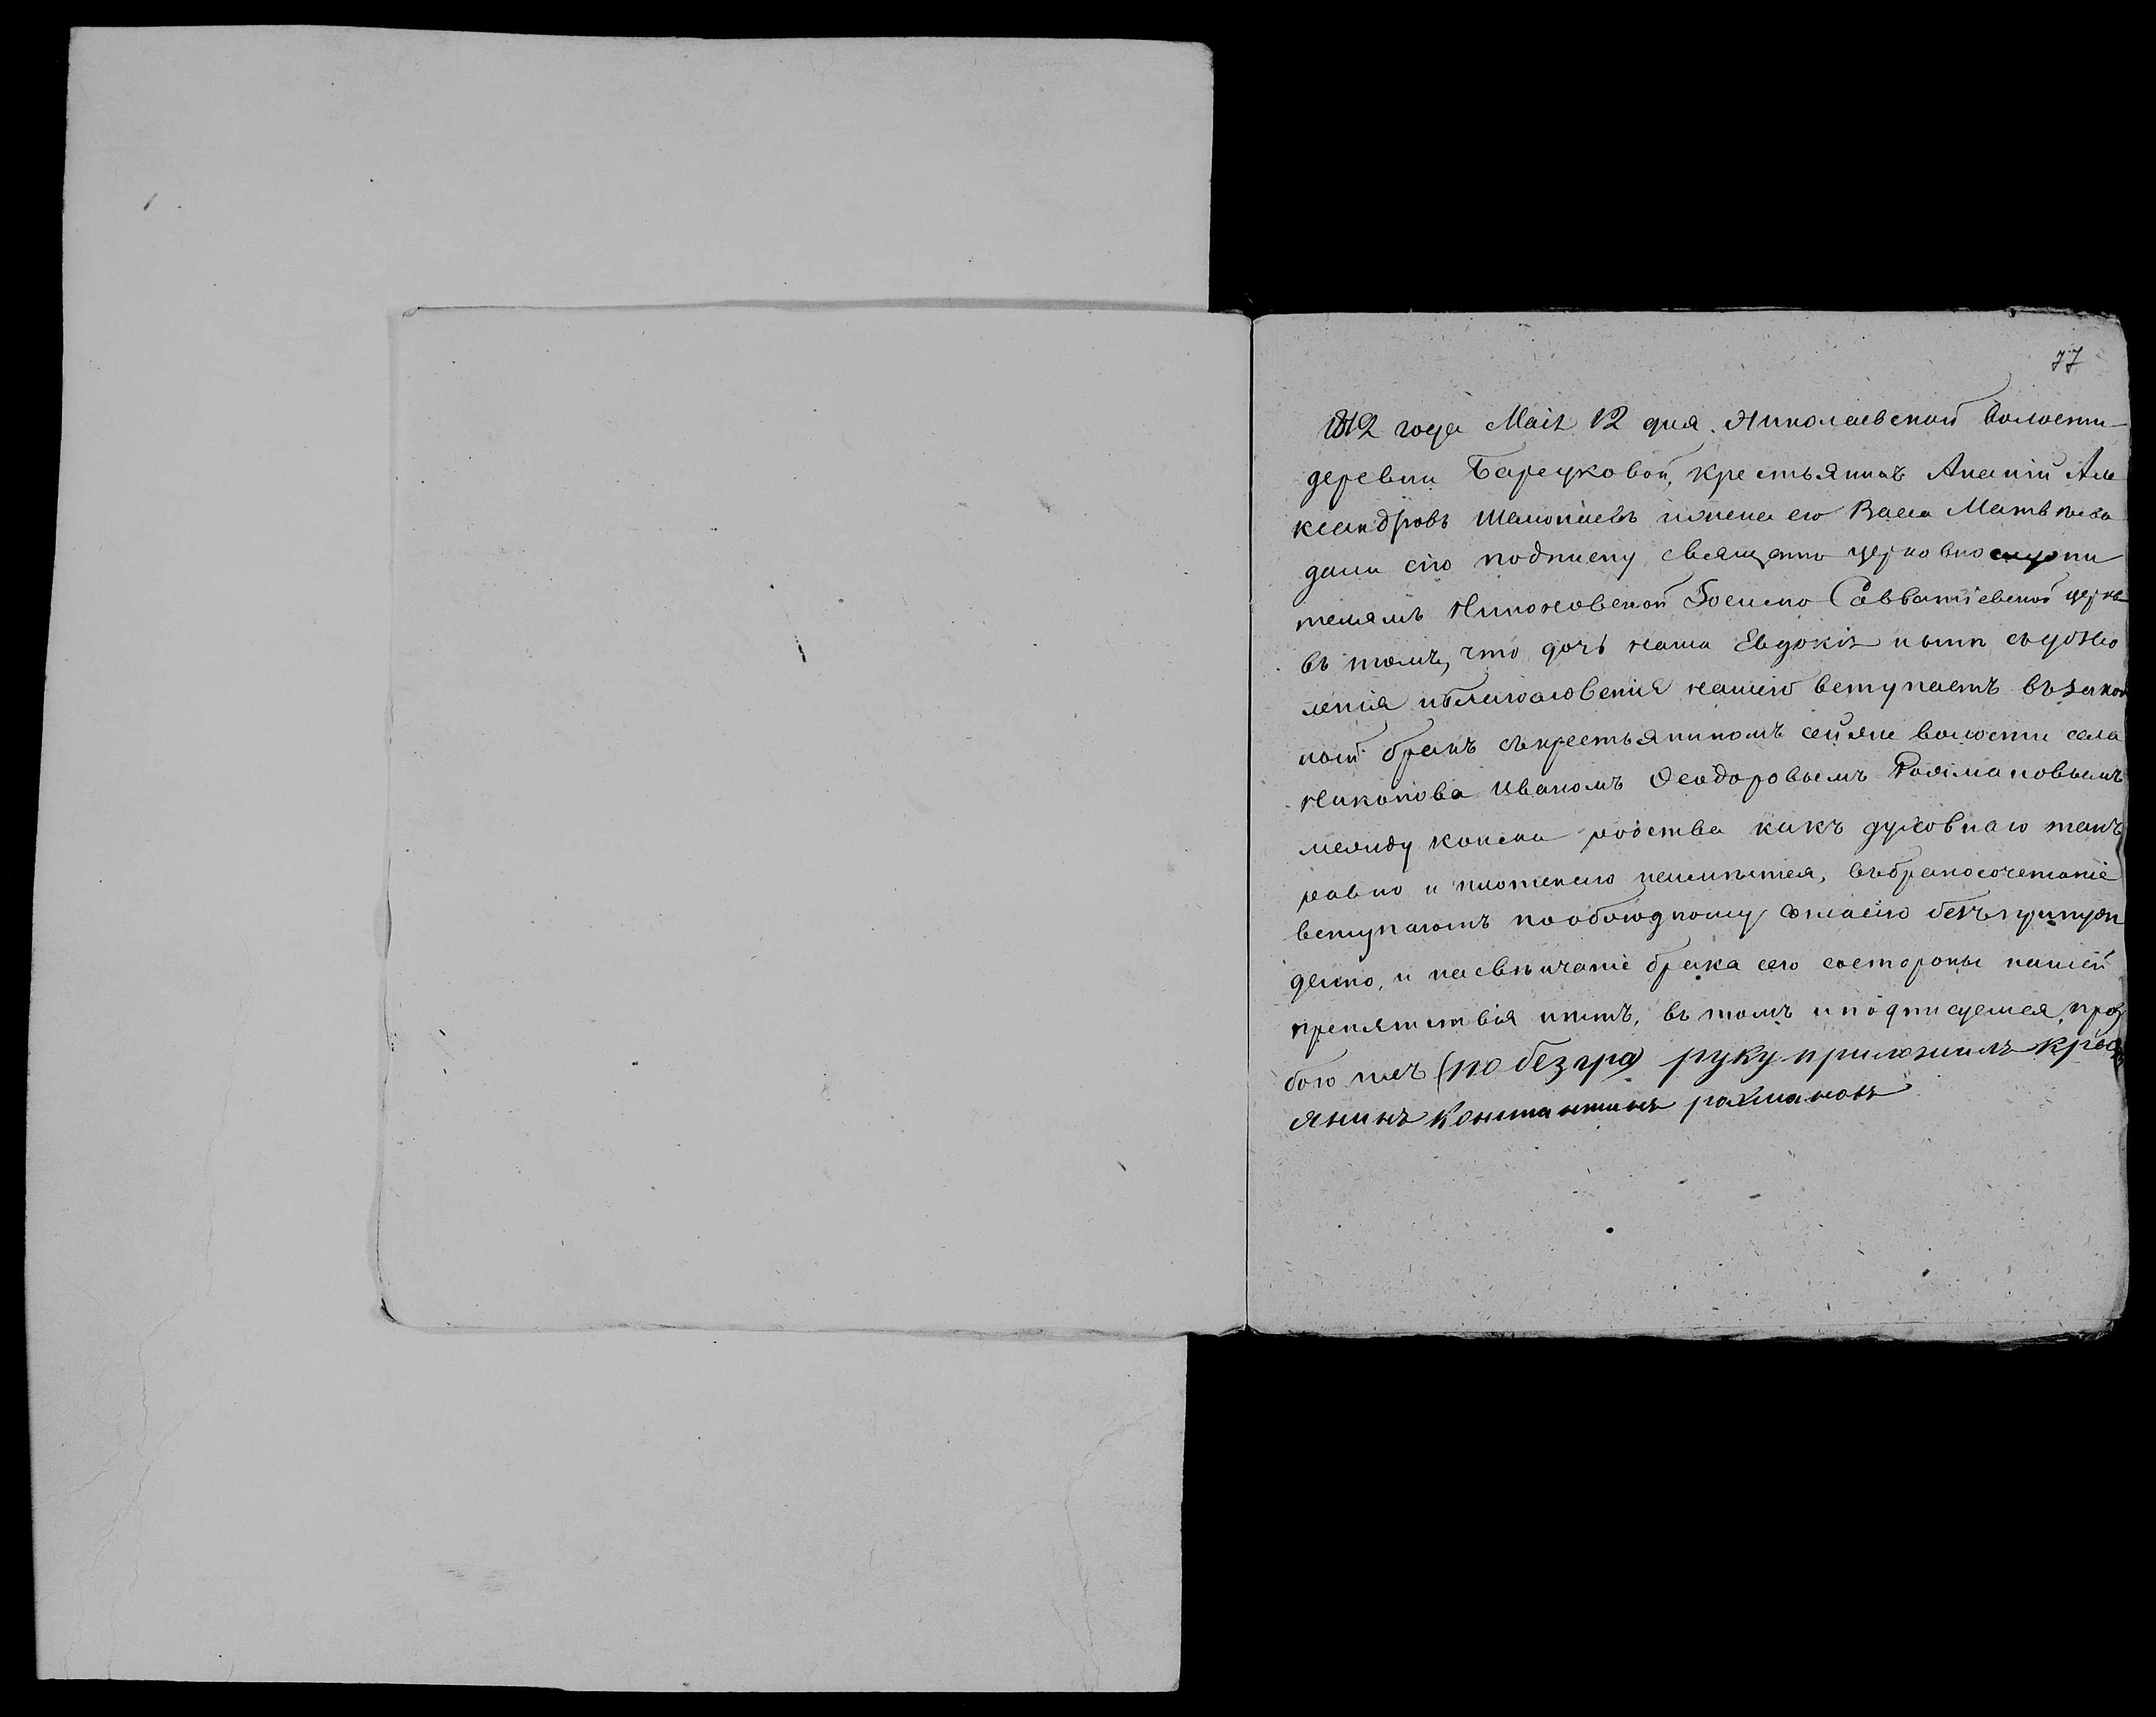 77
1812 года Маія 12 дня. Николаевской волости
деревни Барсуковой, крестьянинъ Ананій Але
ксандровъ ижена его Васса Матвѣева
дали сію подписку священно церковнослужи
телямъ Никоновской Зосимо Савватіевской церкв
въ томъ, что дочь наша Евдокія нынѣ съ
ленія иблагословенія нашего вступаетъ въ закон
ной бракъ скрестьяниномъ сейже волости села
Никонова Иваномъ Ѳеодоровымъ Рахмановымъ
между коими родства какъ духовнаго такъ
равно и плотскаго неимѣется, вбракосочетаніе
вступаютъ пообоюдному согласію безъ принуж
денно, и насвѣнчаніе брака сего состороны нашей
препятствія нѣтъ, въ томъ иподписуемся, прозь
бою ихъ (по безгра) руку приложилъ крест
янинъ Константинъ рахмановъ